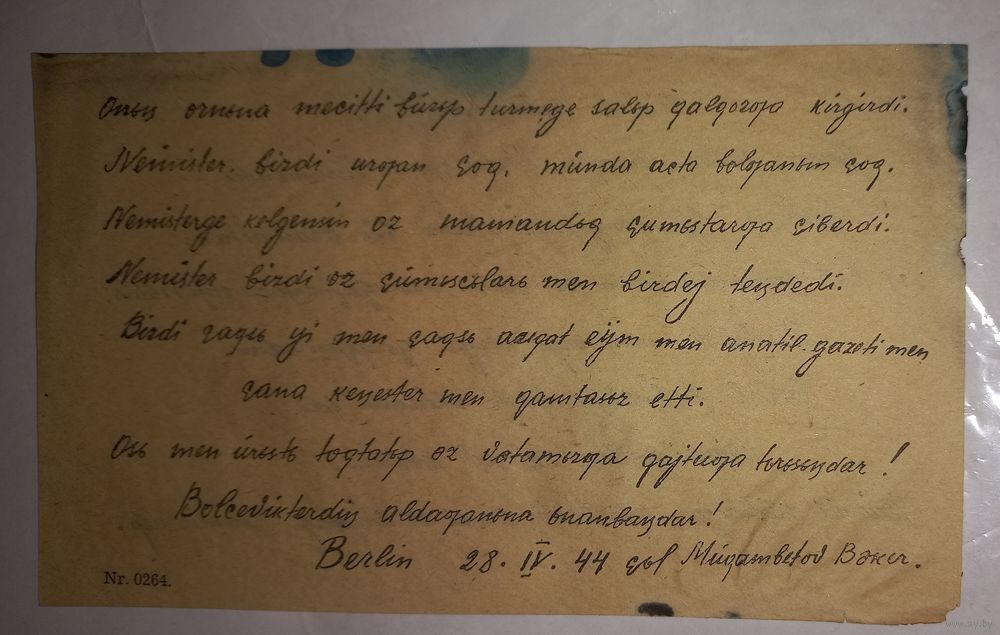 Onьꞑ ornьna mecitti buzьp turmege salьp qalqozƣa kirgirdi.
Nemister. bizdi urƣan çoq, munda acta bolƣanьm çoq.
Nemisterge kelgemin oz mamandьq çumьstarƣa çiberdi.
Nemister bizdi oz çumьscьlarь men birdej teꞑdedi.
Bizdi çaqsь yi men çaqsь azьqat eijm men anatil-gazeti men
çana keꞑester men qamtasьz etti.
Osь men urьstь toqtatьp oz Vatamьzƣa qajtuƣa tьrьsьꞑdar!
Bolceviktерdiꞑ aldaƣanьna ьnanbaꞑdar!
Berlin 28. IV. 44 çьl Muqambetov Bəker.
Nr. 0264.
www.ay.by